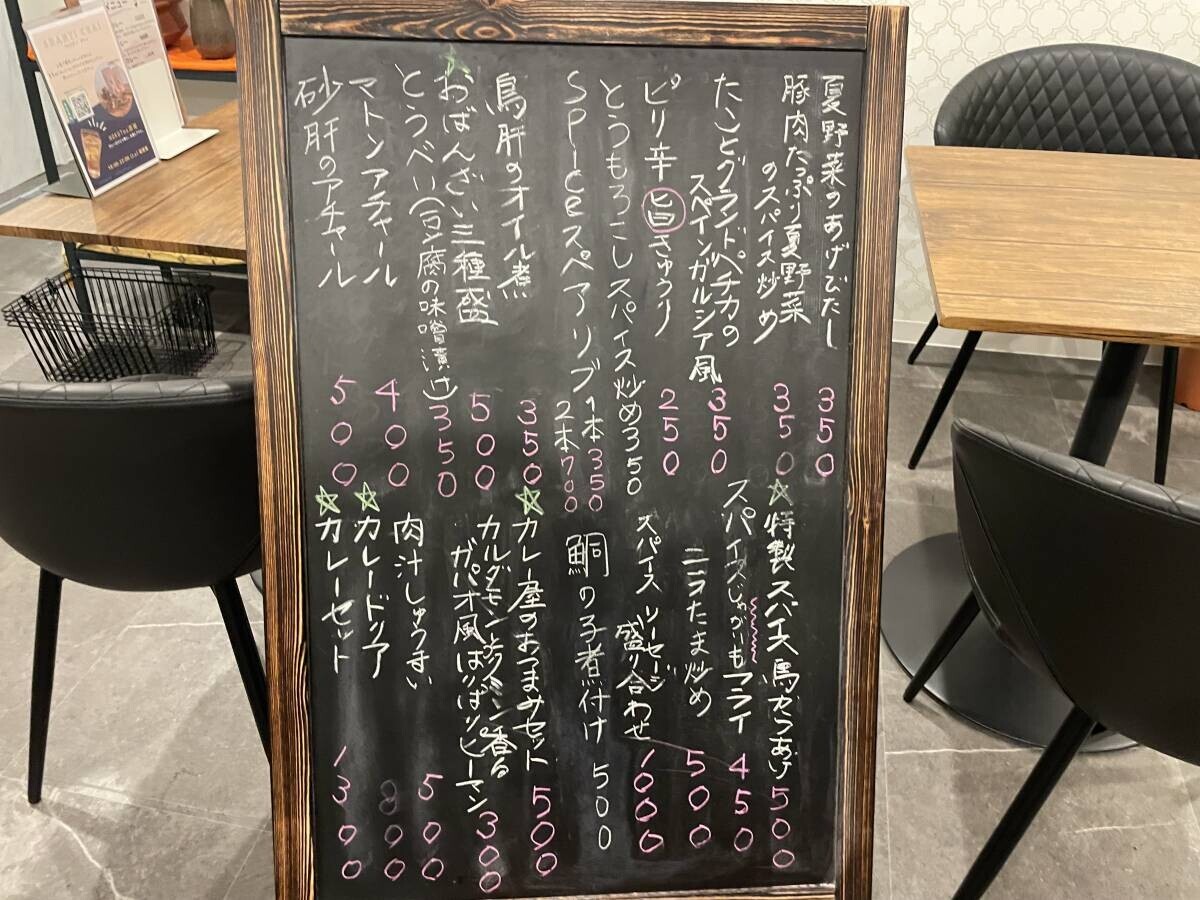 夏野菜のあげびたし 350
豚肉たっぷり夏野菜
のスパイス炒め 350
たことグランドペチカの
スペインガルシア風 350
ピリ辛 旨 きゅうり 250
とうもろこしスパイス炒め 350
Spiceスペアリブ 1本 350
2本 700
鳥肝のオイル煮 350
☆おばんざい三種盛 500
とうべい(豆腐の味噌漬け) 350
マトンアチャール 400
砂肝のアチャール 500
☆特製スパイス鳥からあげ 500
スパイスじゃがいもフライ 450
ニラたま炒め 500
スパイス ソーセージ
盛り合わせ 1000
鯛の子煮付け 500
☆カレー屋のおつまみセット 500
カルダモンとクミン香る
ガパオ風ぱりぱりピーマン 300
肉汁しゅうまい 500
☆カレードリア 800
☆カレーセット 1300
メニュー